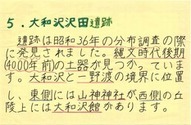 5．大和沢沢田遺跡
遺跡は昭和36年の分布調査の際
に発見されました。縄文時代後期
(4000年前)の土器が見つかっていま
す。大和沢と一野渡の境界に位置
し、東側には山神神社が西側の丘
陵上には大和沢館があります。